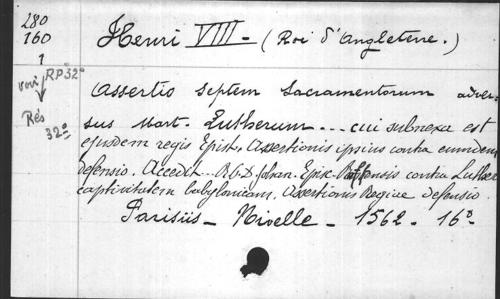 280
160
1
RP 32°
voir
Rés
32°
Henri VIII - (Roi d'Angleterre.)
Assertio septem Sacramentorum adver-
sus Mart. Lutherum ... cui subnexa est
ejusdem regis Epist. Assertionis ipsius contra eumdem
defensio. Accedit .. R.D.D. Johan. Episc. Roffensis contra Lutheri
captivitatem babylonicam, Assertionis Regiae defensio.
Parisiis - Nivelle - 1562. - 16°